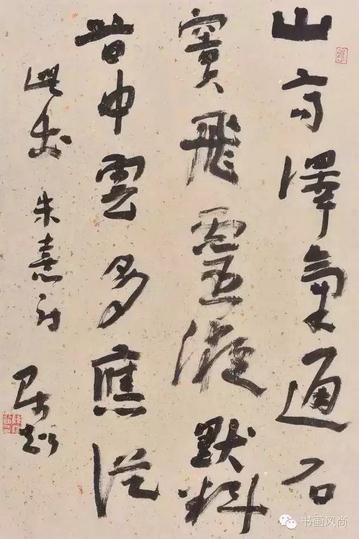 山高澤氣通石
竇飛靈液默料
谷中雲多應從
此出 朱熹
书画风尚